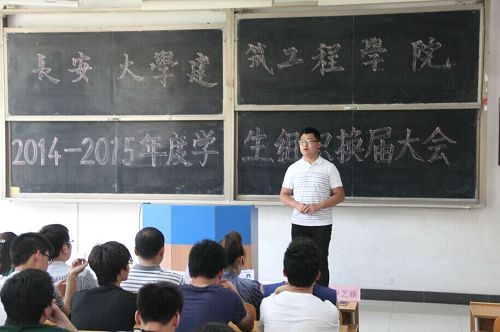 長安大學建筑工程學院
2014-2015年度学生组织换届大会